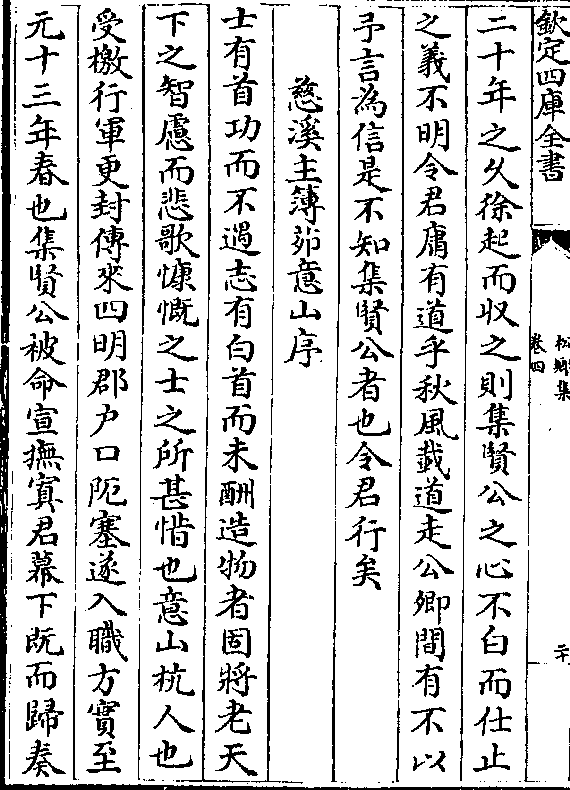 欽定四庫全書
松鄉集
卷四
二十
二十年之久徐起而収之則集賢公之心不白而仕止
之義不明令君庸有道乎秋風載道走公卿間有不以
予言為信是不知集賢公者也令君行矣
慈溪主簿茆意山序
士有首功而不遇志有白首而未酬造物者固將老天
下之智慮而悲歌慷慨之士之所甚惜也意山杭人也
受檄行軍更封傳來四明郡户口阨塞遂入職方實至
元十三年春也集賢公被命宣撫寘君幕下既而歸奏